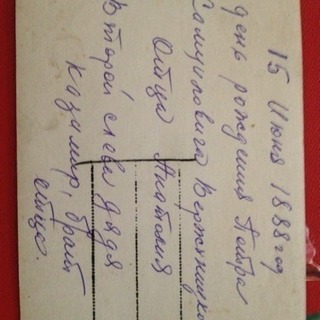 15 Июня 1888 год
день рождения Петра
Самуиловича
Отца Анатолия
Второй слева дядя
Казимир, брат
отца.